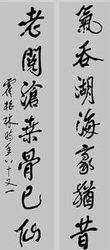 氣吞湖海豪猶昔
老閱滄桑骨已仙
霍松林時年八十又一